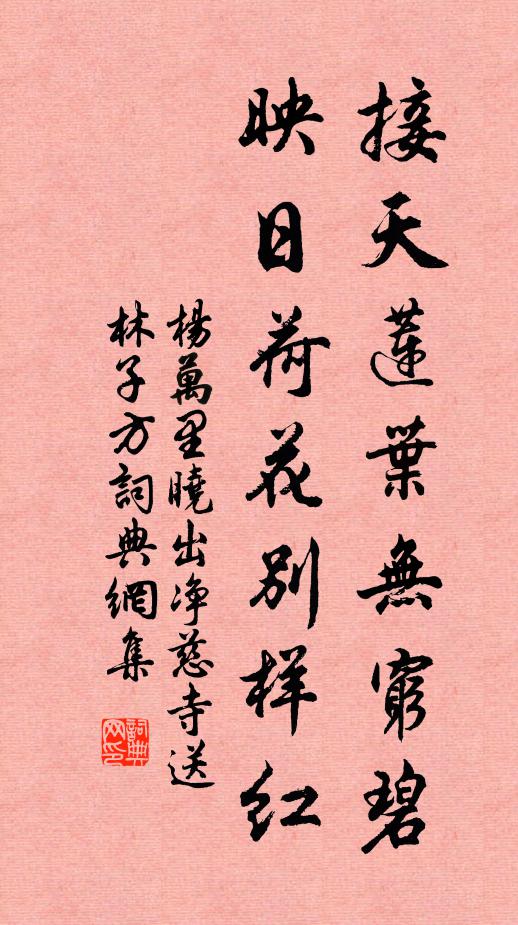 接天蓮葉無窮碧
映日荷花別样红
楊萬里曉出净慈寺送
林子方詞典網集
詞典网印